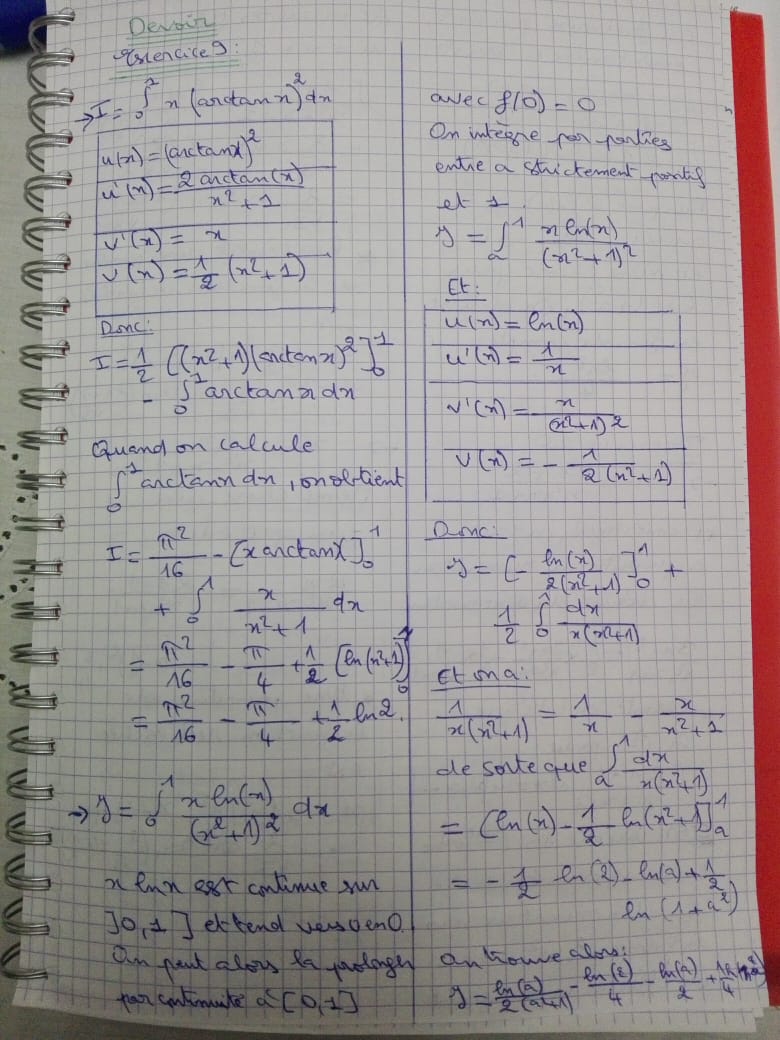 Devoir
Exercice 9:
→ I = ∫₀¹ x (arctan x)² dx
u(x) = (arctanx)²
u'(x) = 2 arctan(x) / x² + 1
v'(x) = x
v(x) = 1/2 (x² + 1)
Donc:
I = 1/2 [(x²+1)(arctan x)²]₀¹
- ∫₀¹ arctan x dx
Quand on calcule
∫₀¹ arctan x dx, on obtient
I = π²/16 - [x arctan x]₀¹
+ ∫₀¹ x / x² + 1 dx
= π²/16 - π/4 + 1/2 [ln(x²+1)]₀¹
= π²/16 - π/4 + 1/2 ln 2.
→ J = ∫₀¹ x ln(x) / (x²+1)² dx
x ln x est continue sur
]0,1] et tend vers 0 en 0.
On peut alors la prolonger
par continuité à [0,1]
avec f(0) = 0
On intègre par parties
entre a strictement positif
et 1.
J = ∫ₐ¹ x ln(x) / (x²+1)²
Et:
u(x) = ln(x)
u'(x) = 1/x
v'(x) = x / (x²+1)²
v(x) = - 1 / 2(x²+1)
Donc:
J = [- ln(x) / 2(x²+1)]₀¹ +
1/2 ∫₀¹ dx / x(x²+1)
Et on a:
1 / x(x²+1) = 1/x - x / x²+1
de sorte que ∫ₐ¹ dx / x(x²+1)
= [ln(x) - 1/2 ln(x²+1)]ₐ¹
= - 1/2 ln(2) - ln(a) + 1/2
ln(1+a²)
on trouve alors:
J = ln(a) / 2(a²+1) - ln(2)/4 - ln(a)/2 +